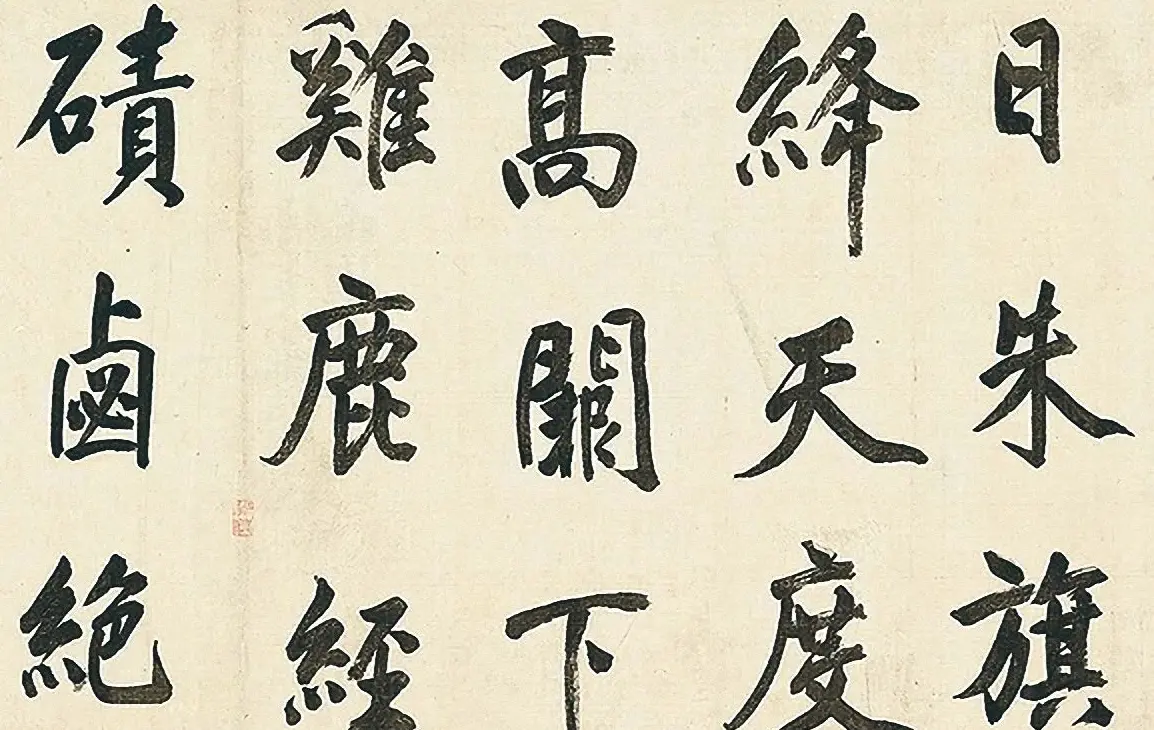 日朱旗
絳天度
髙闕下
雞鹿經
磧鹵絕